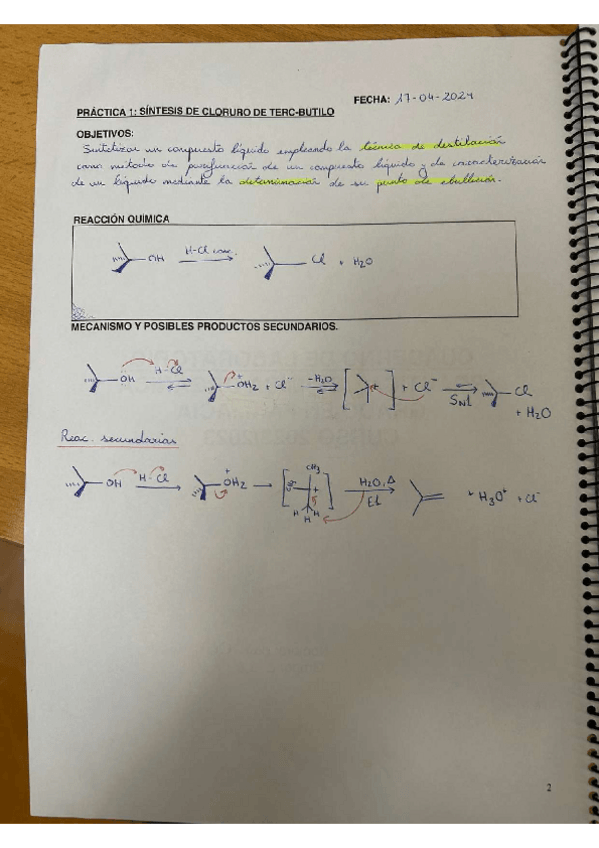 FECHA: 17-04-2024
PRÁCTICA 1: SÍNTESIS DE CLORURO DE TERC-BUTILO
OBJETIVOS:
Sintetizar un compuesto líquido empleando la técnica de destilación
como método de purificación de un compuesto líquido y de caracterización
de un líquido mediante la determinación de su punto de ebullición.
REACCIÓN QUÍMICA
OH H-Cl conc. Cl + H2O
MECANISMO Y POSIBLES PRODUCTOS SECUNDARIOS.
OH H-Cl +OH2 + Cl- -H2O + + Cl- SN1 Cl
+ H2O
Reac. secundarias
OH H-Cl +OH2 CH3 CH3 + H H H H2O, Δ E1 + H3O+ + Cl-
2